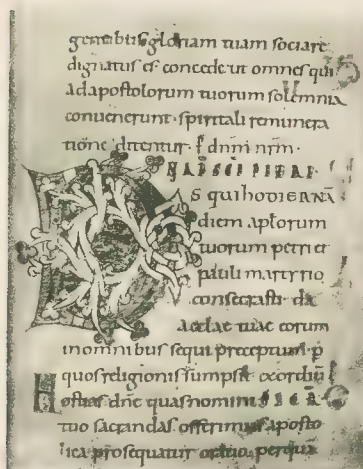 gentibus gloriam tuam sociare
dignatus es concede ut omnes qui
ad apostolorum tuorum solemnia
convenerunt· spiritali remunera
tione ditentur· P dnm nrm·
S QUI HODIERNĀ
diem aplorum
tuorum petri et
pauli martyrio
consecrasti· da
aeclae tuae eorum
in omnibus sequi preceptum· p
quos religionis sumpsit exordiū
Hostias dne quas nomini
tuo sacrandas offerimus aposto
lica prosequatur oratio· per quā